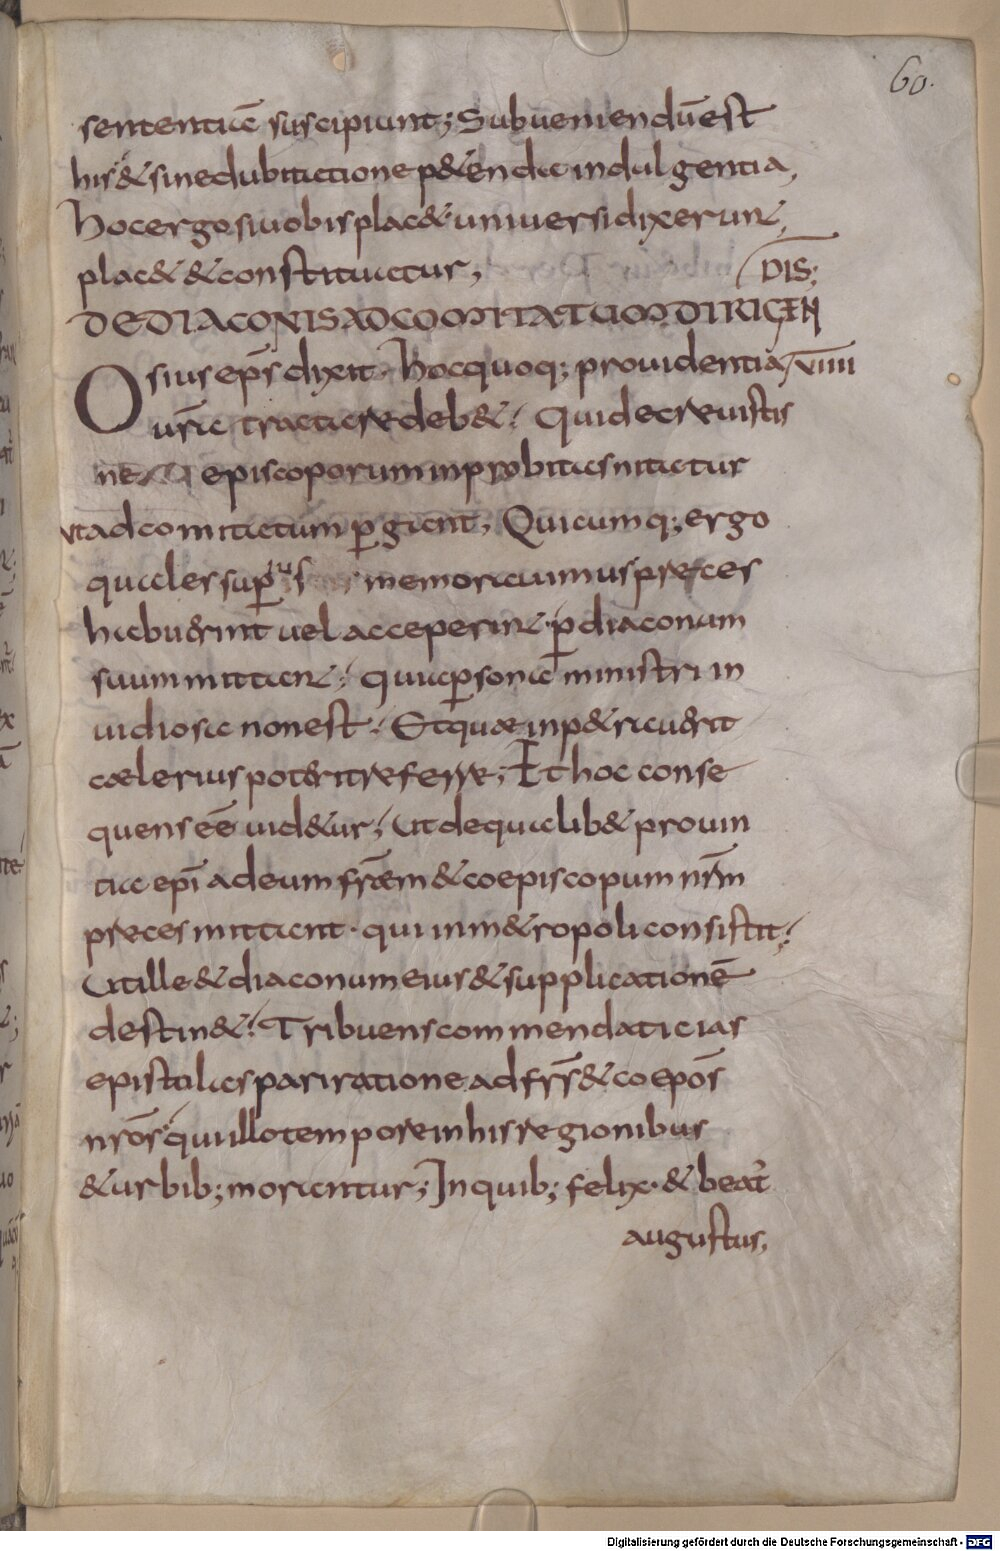 60.
sententiā suscipiunt; Subueniendū est
his & sine dubitatione p&enda indulgentia,
hoc ergo si uobis plac& uniuersi dixerunt,
plac& & constituatur;
DIS;
DE DIACONIS AD COMITATUM DIRIGEN
Osius ep̄s dixit. hoc quoq; prouidentia VIIII
ur̄a tractare deb&; Qui decreuistis
ne episcoporum inprobitas nitatur
ut ad comitatum p̱gant, Quicumq; ergo
quales sup̱ius memorauimus preces
habuerint uel acceperint p̱ diaconum
suum mittant; quia p̱sona ministri in
uidiosa non est; Et quae inp&rauerit
caelerius poterit referre; Et hoc conse
quens eē uid&ur; Ut de qualib& prouin
tia ep̄i ad eum fr̄aem & coepiscopum nr̄m
preces mittant. qui in m&ropoli consistit;
Ut ille & diaconum eius & supplicationē
destin&; Tribuens commendaticias
epistulas pari ratione ad fr̄s & coepōs
nrōs qui illo tempore in his regionibus
& urbib; morantur; In quib; felix. & beat'
augustus,
Digitalisierung gefördert durch die Deutsche Forschungsgemeinschaft - DFG